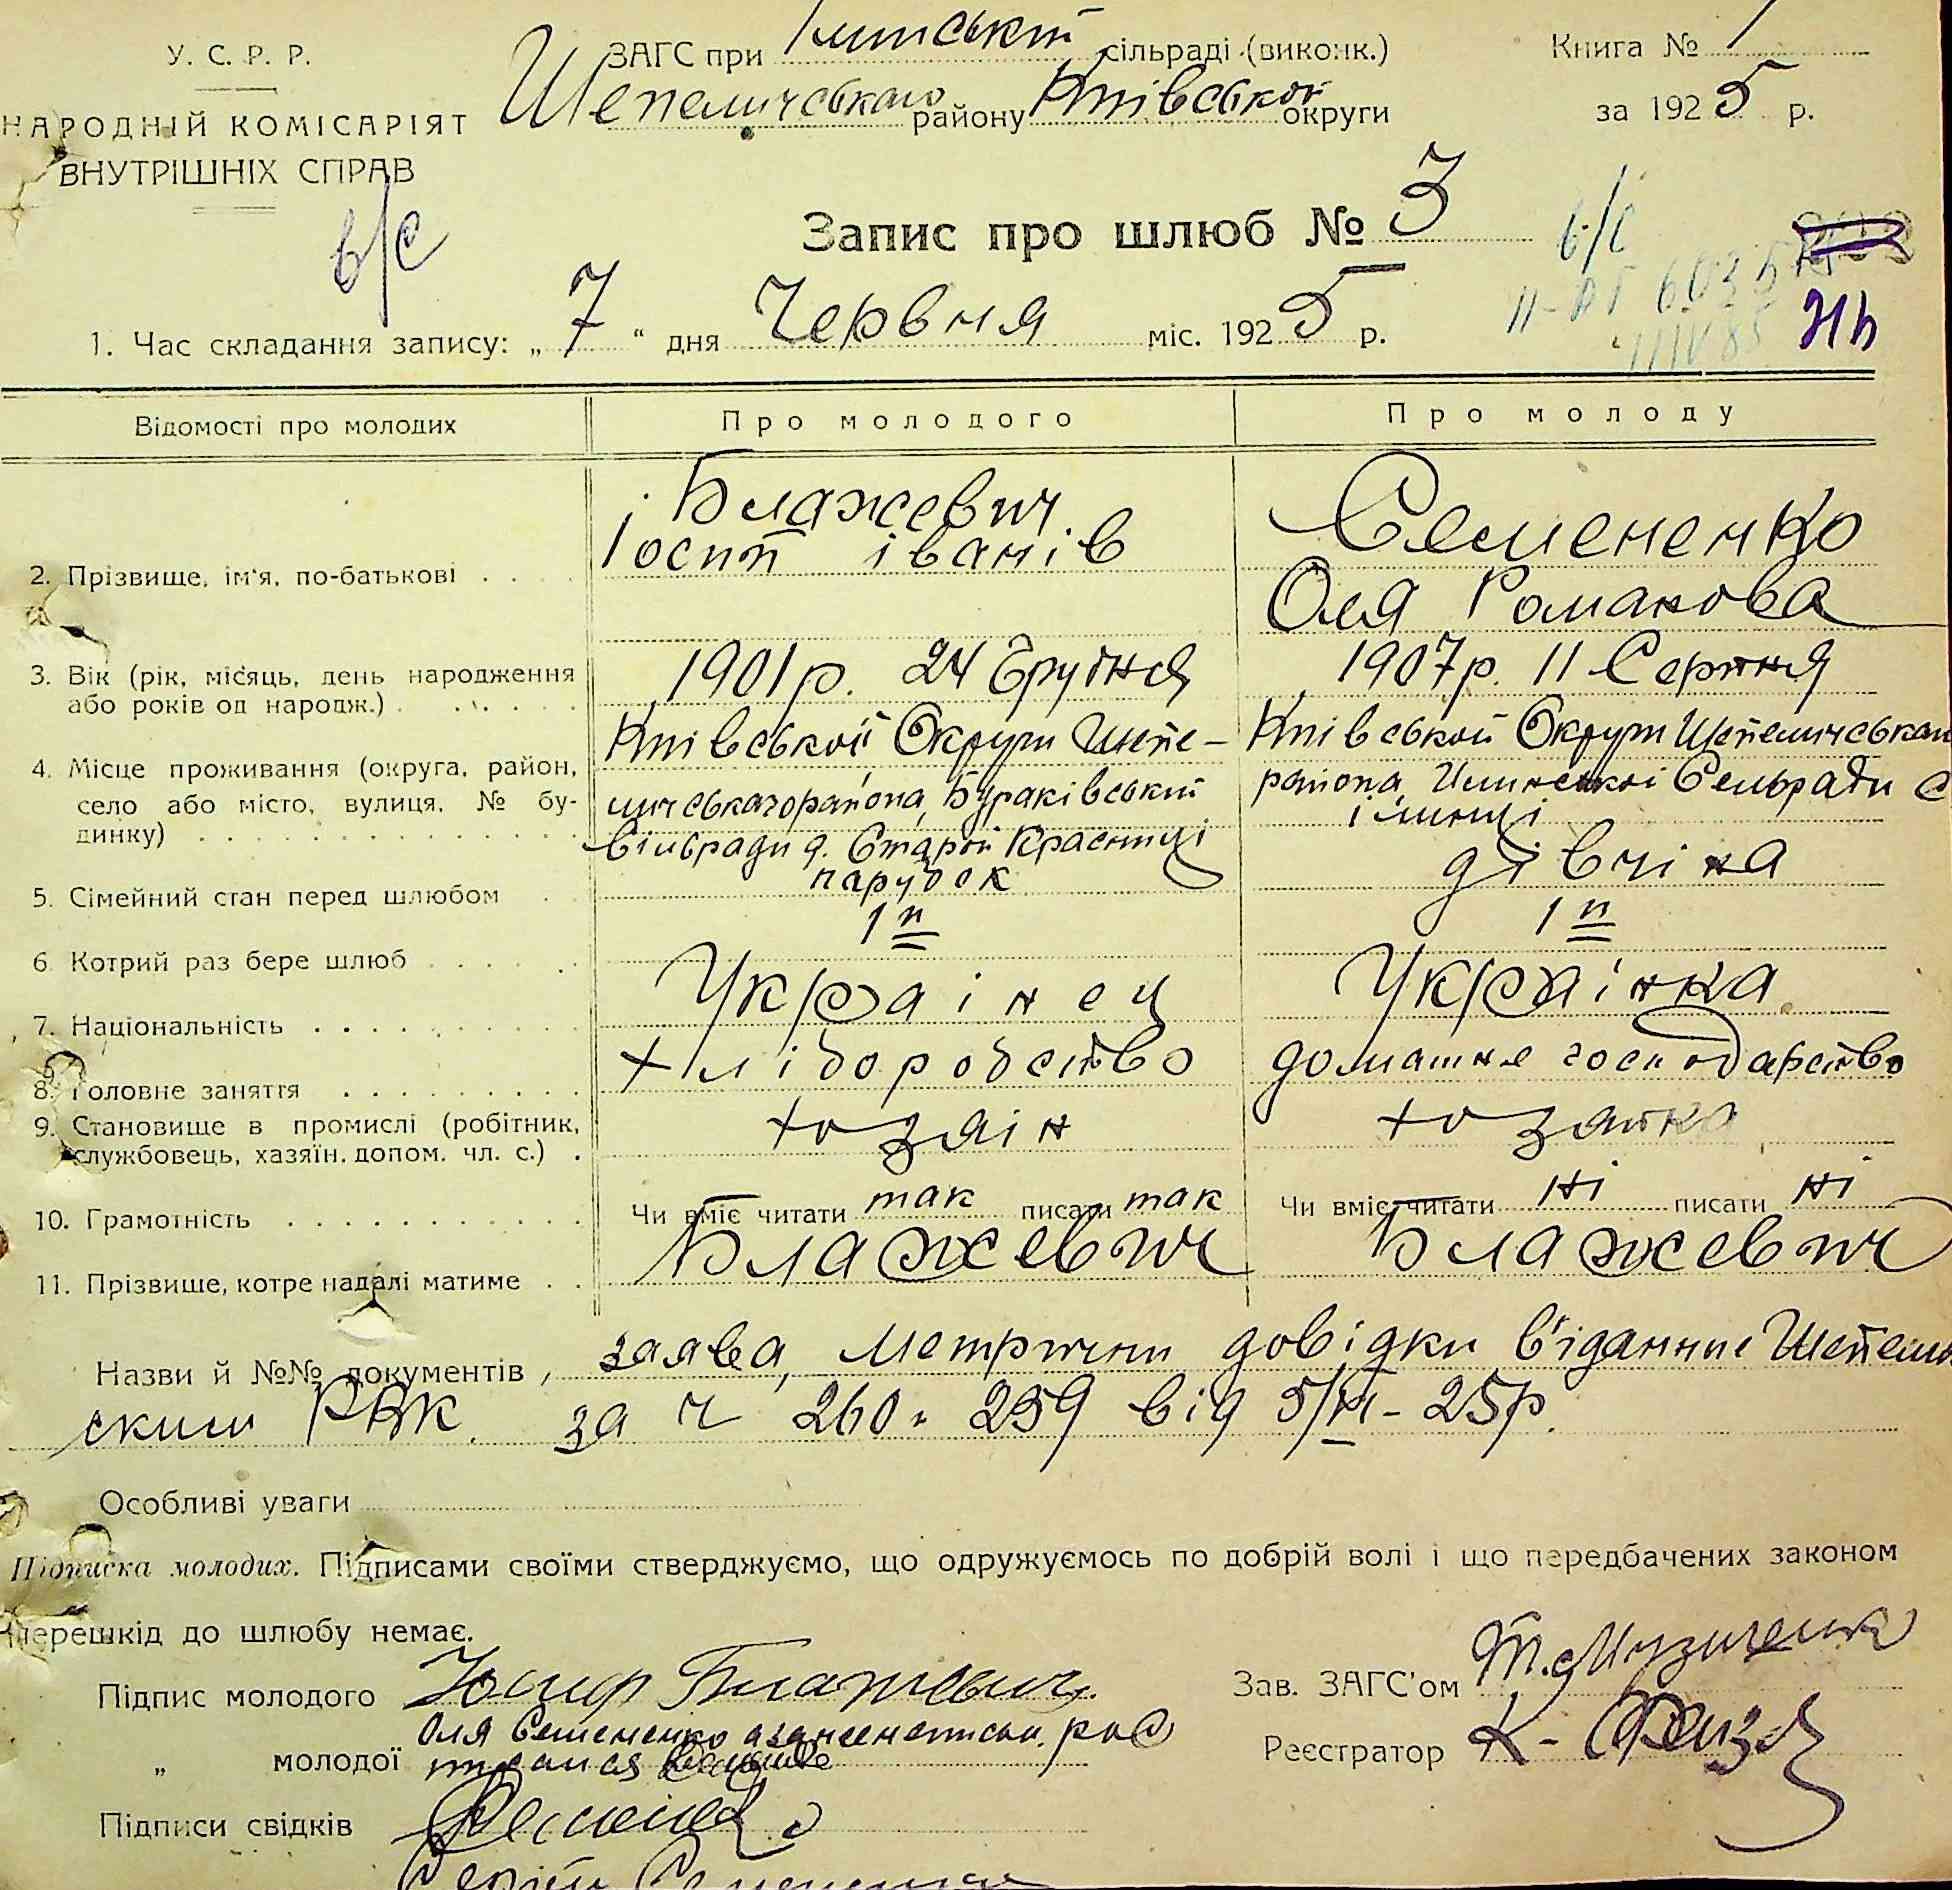 У. С. Р. Р.
НАРОДНІЙ КОМІСАРІЯТ
ВНУТРІШНІХ СПРАВ
в/с
ЗАГС при сільраді (виконк.)
Шепеличського району Київської округи
Книга № 1
за 1925 р.
Запис про шлюб № 3
в/с
1. Час складання запису: „ 7 “ дня Червня міс. 1925 р.
Відомості про молодих Про молодого Про молоду
2. Прізвище, ім'я, по-батькові
Блажевич
Іосип іванів
Семененко
Оля Романова
3. Вік (рік, місяць, день народження
або років од народж.)
1901р. 24 Грудня
1907р. 11 Серпня
4. Місце проживання (округа, район,
село або місто, вулиця, № бу-
динку)
Київської Округи Шепе-
личськагорайона, Бураківський
сільради д. Старой Красниці
Київской Округи Шепеличськаи
района Сельради с
ілинці
5. Сімейний стан перед шлюбом парубок дівчіна
6. Котрий раз бере шлюб 1й 1й
7. Національність Українец Українка
8. Головне заняття хліборобство домашне господарство
9. Становище в промислі (робітник,
службовець, хазяїн, допом. чл. с.)
хозяін
хозайка
10. Грамотність Чи вміє читати так писати так Чи вміє читати ні писати ні
11. Прізвище, котре надалі матиме Блажевич Блажевич
Назви й №№ документів, заява, Метричні довідки Шепели
ским РВК. за ч 260 259 від 5/VI-25р.
Особливі уваги
Підписка молодих. Підписами своїми стверджуємо, що одружуємось по добрій волі і що передбачених законом
перешкід до шлюбу немає.
Підпис молодого Іосиф Блажевич
„ молодої Оля Семененко
Підписи свідків
Сергій Семененко
Зав. ЗАГС'ом
Реєстратор